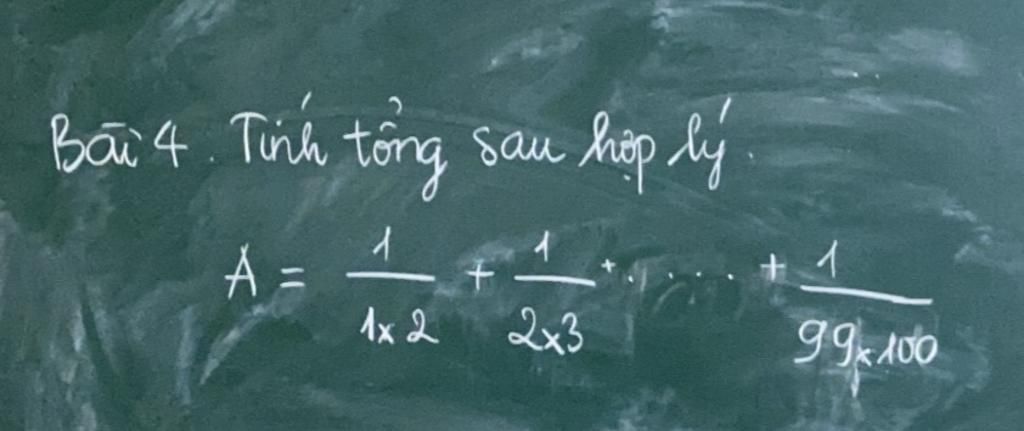 Bài 4. Tính tổng sau hợp lý.
A = 1/1x2 + 1/2x3 + ..... + 1/99x100